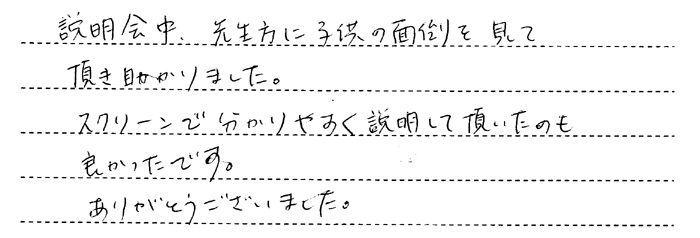 説明会中、先生方に子供の面倒を見て
頂き助かりました。
スクリーンで分かりやすく説明して頂いたのも
良かったです。
ありがとうございました。